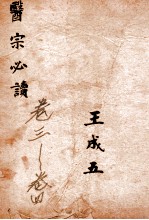 醫宗必讀
卷三~卷四
王成五